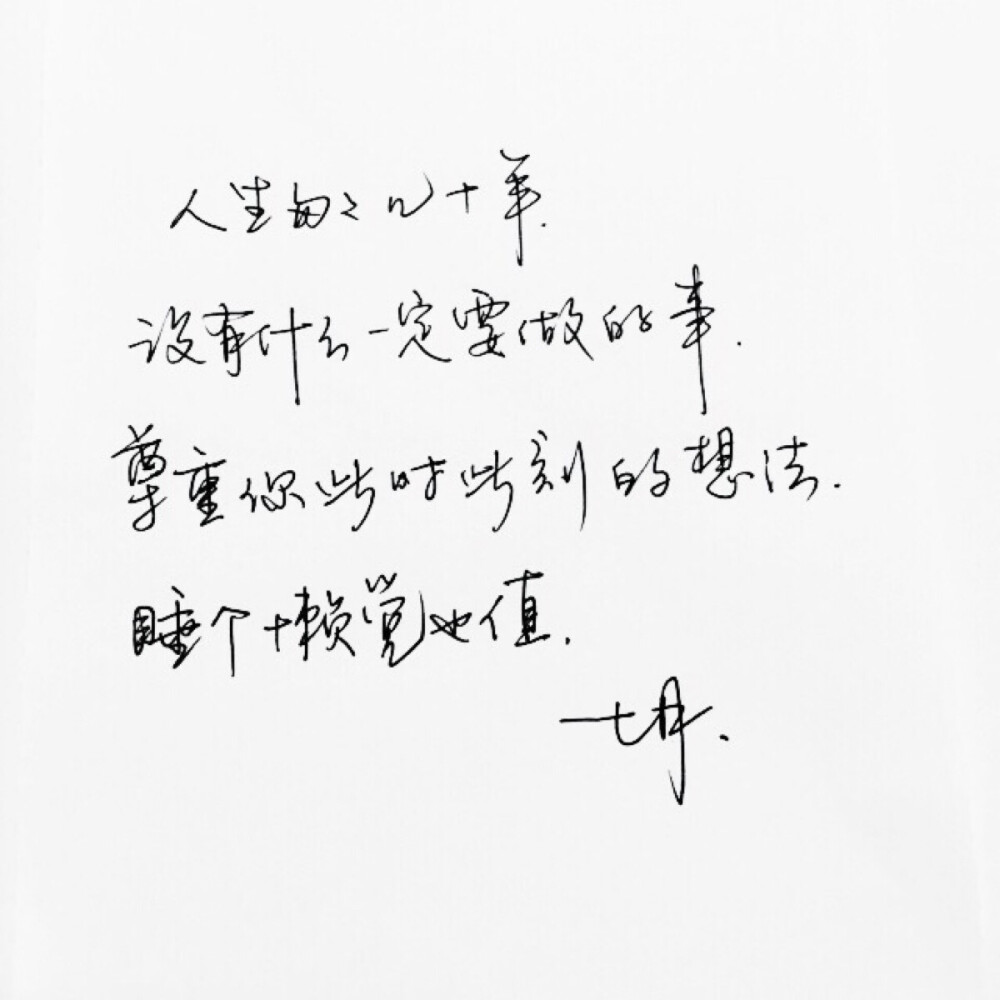 人生匆匆几十年.
没有什么一定要做的事.
尊重你此时此刻的想法.
睡个懒觉也值.
一七月.